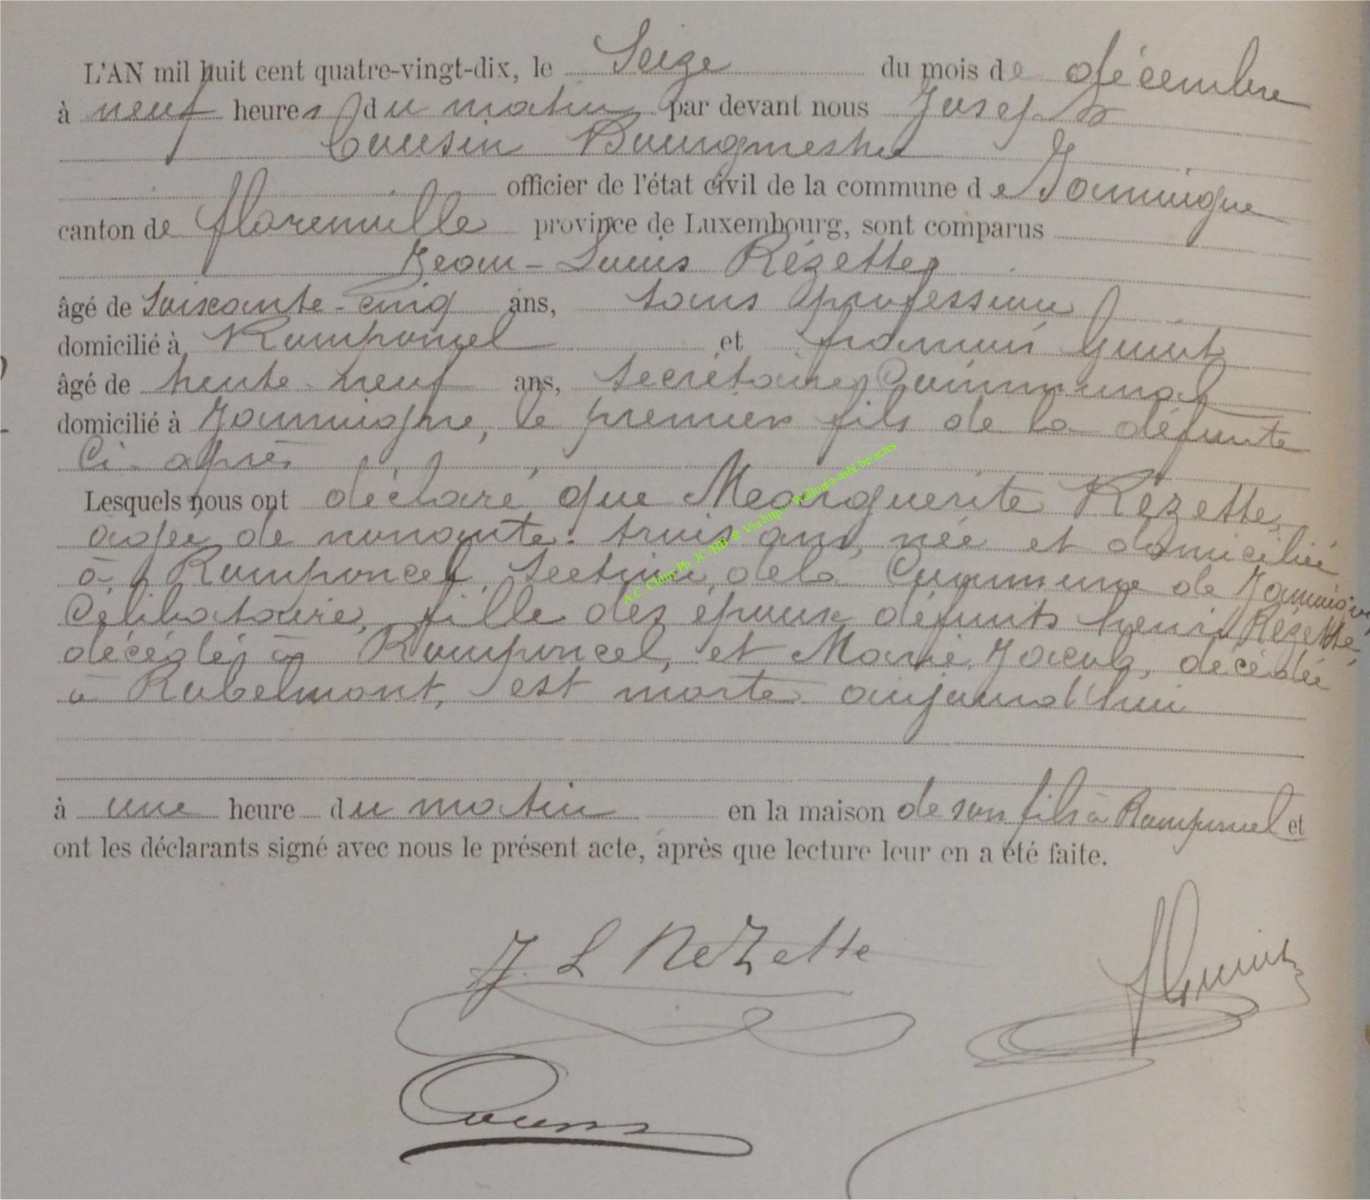 L'AN mil huit cent quatre-vingt-dix, le Seize du mois de décembre
à neuf heures du matin par devant nous Joseph
Cousin Bourgmestre
officier de l'état civil de la commune de Jamoigne
canton de florenville province de Luxembourg, sont comparus
Jean-Louis Rézette,
âgé de Soiscante-cinq ans, sans profession
domicilié à Romponcel et françois Guiot
âgé de trente-neuf ans, Secrétaire Communal
domicilié à Jamoigne, le premier fils de la défunte
Ci-après
Lesquels nous ont déclaré que Marguerite Rézette,
agée de nonante-trois ans, née et domiciliée
à Romponcel, Section de la Commune de Jamoigne
Célibataire, fille des époux défunts henri Rézette,
décédés à Romponcel, et Marie Jacob, décédée
à Rubelmont, est morte aujourd'hui
à une heure du matin en la maison de son fils à Romponcel et
ont les déclarants signé avec nous le présent acte, après que lecture leur en a été faite.
J. L Rezette
f Guiot
Cousin